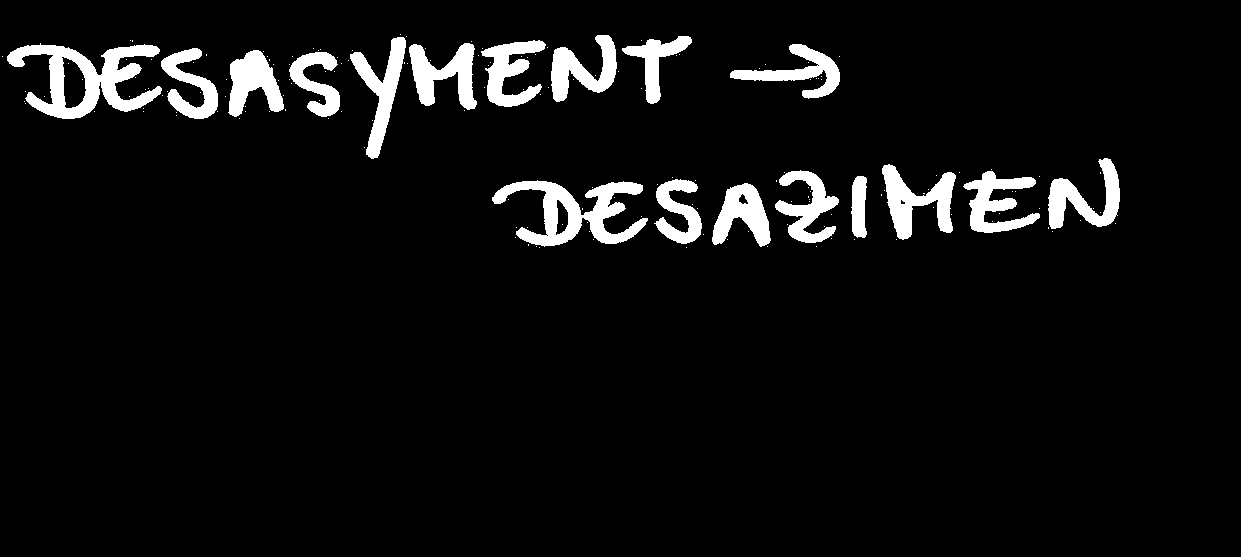 DESASYMENT →
DESAZIMEN